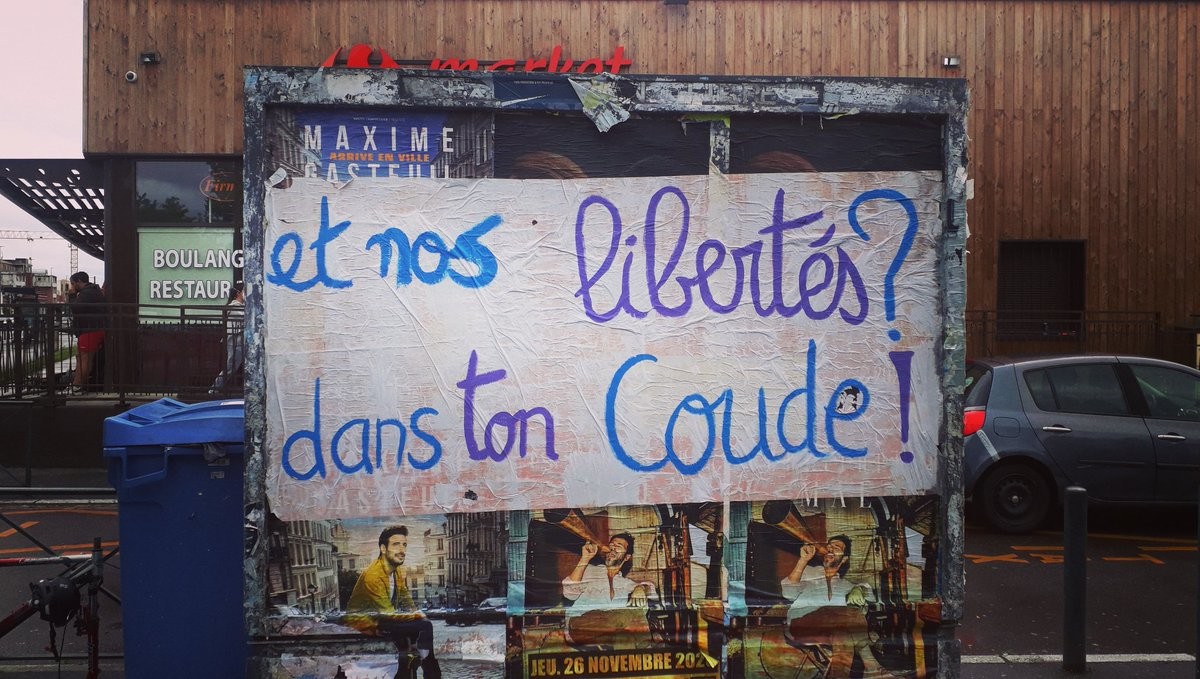 market
MAXIME
ARRIVE EN VILLE
GASTEUIL
et nos libertés?
BOULANG
RESTAUR
dans ton Coude!
JEU. 26 NOVEMBRE 202